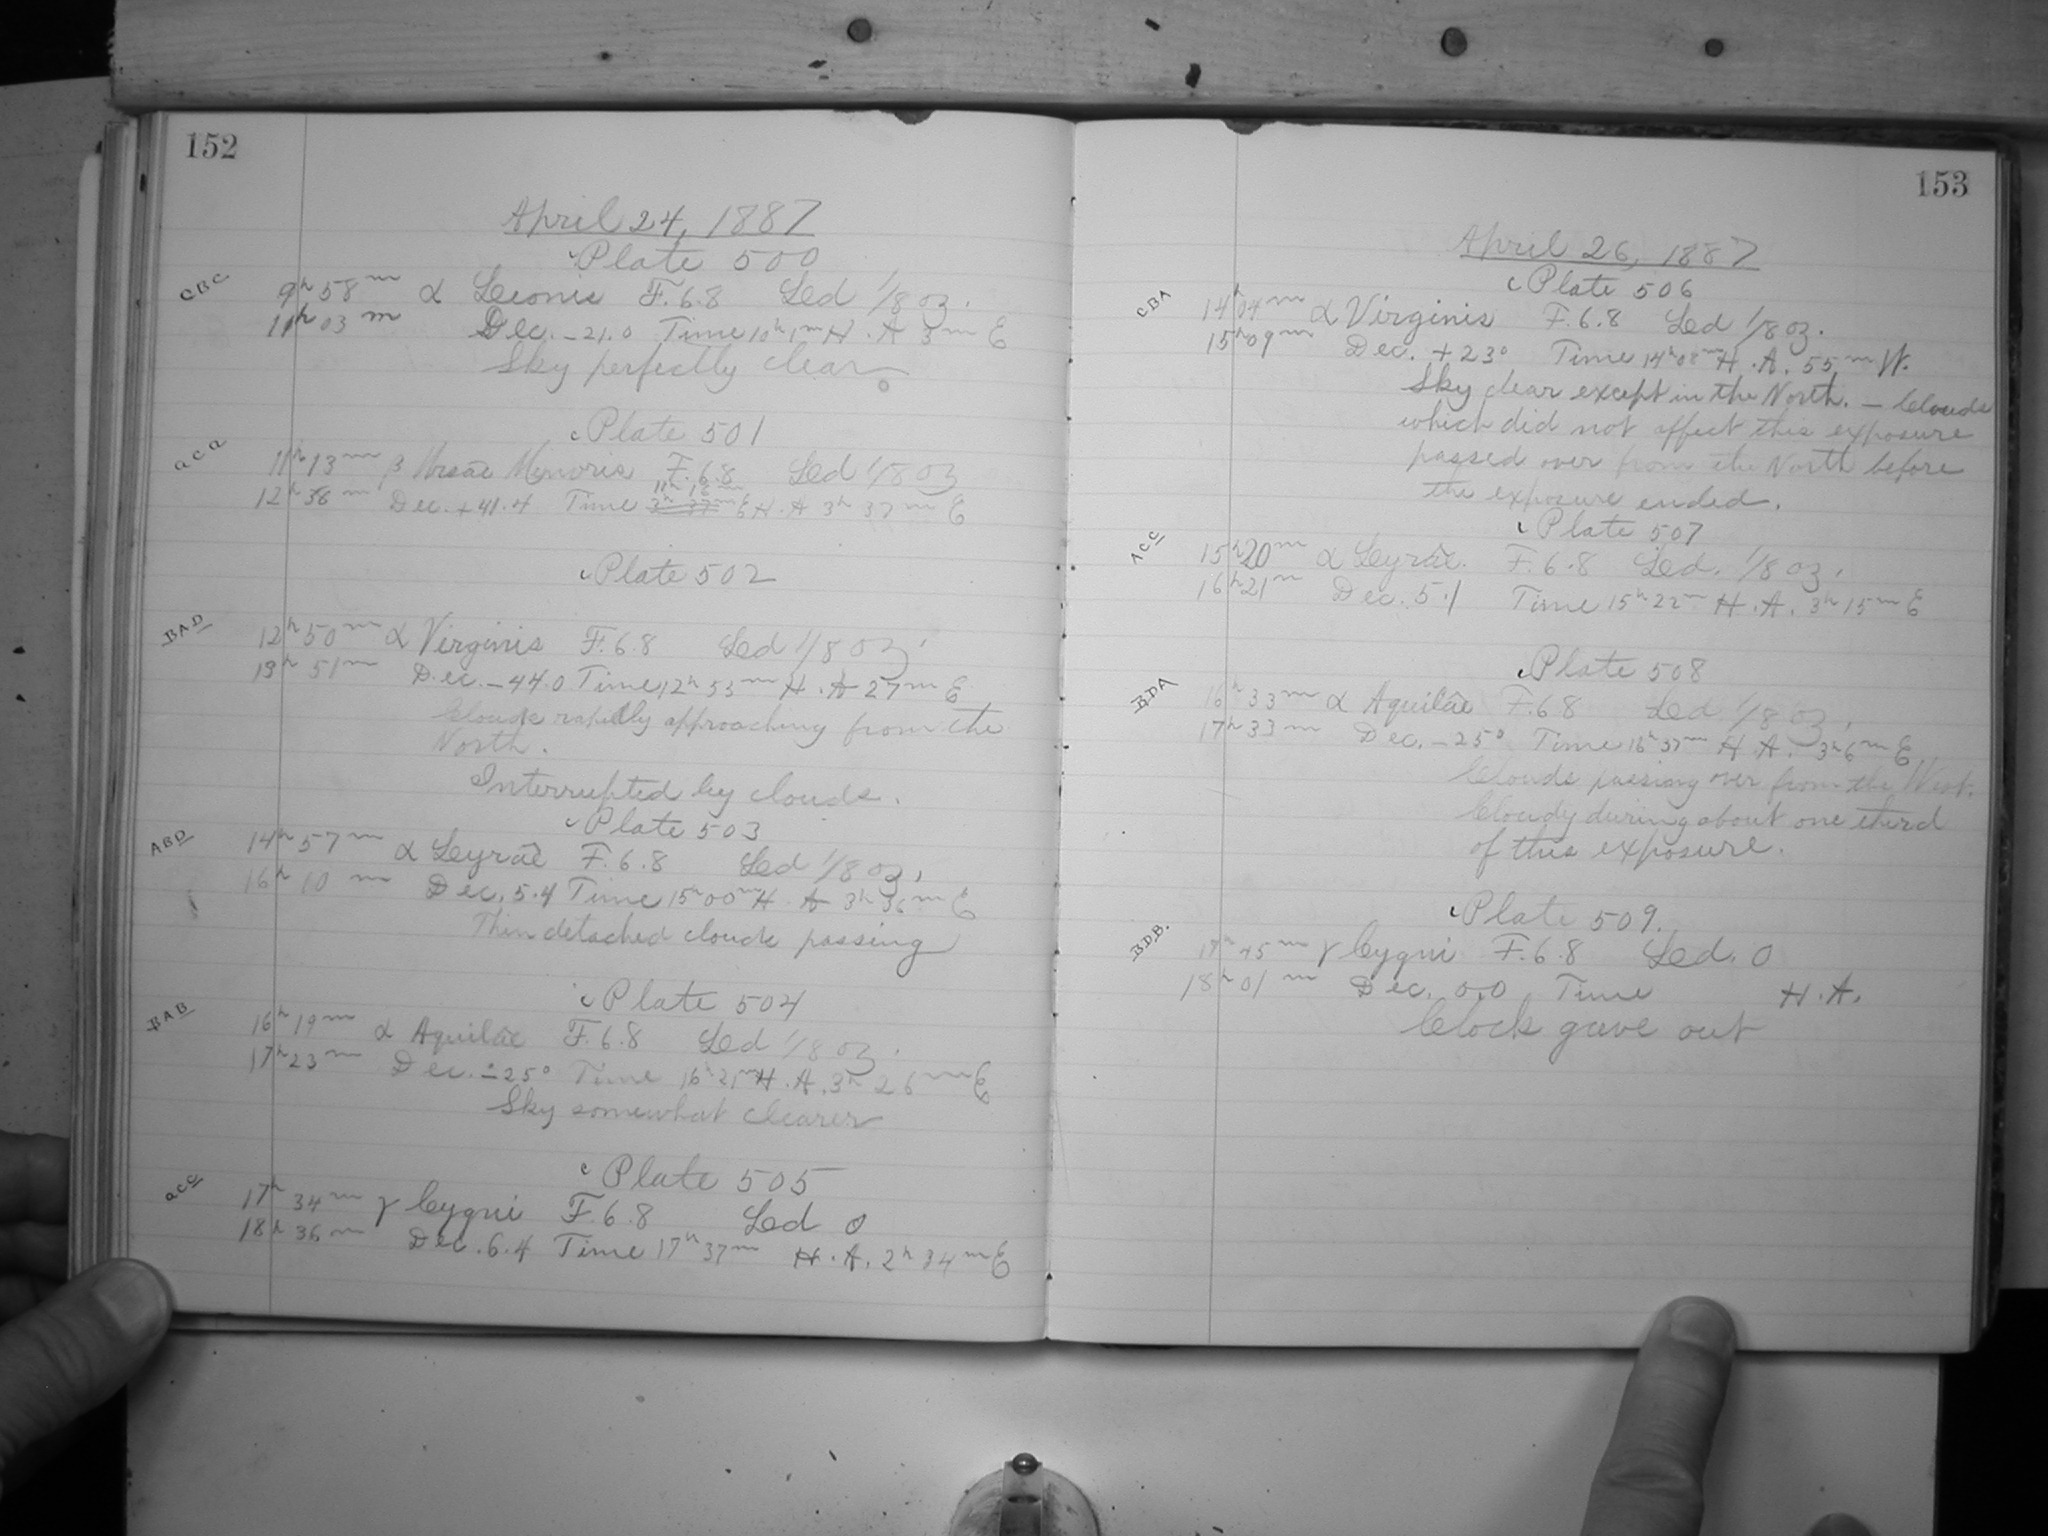 152
April 24, 1887
c Plate 500
CBC 9h 58m α Leonis F. 6.8 Led 1/8 oz.
11h 03m Dec. -21.0 Time 10h 1m H. A 3m E
Sky perfectly clear
c Plate 501
aca 11h 13m β Ursae Minoris F. 6.8 Led 1/8 oz
11h 18m
12h 38m Dec. +41.4 Time 3h 37m E H. A 3h 37m E
c Plate 502
BAD 12h 50m α Virginis F. 6.8 Led 1/8 oz.
13h 51m Dec. -44.0 Time 12h 53m H. A 27m E
Clouds rapidly approaching from the
North.
Interrupted by clouds.
c Plate 503
ABD 14h 57m α Lyrae F. 6.8 Led 1/8 oz.
16h 10m Dec. 5.4 Time 15h 00m H. A 3h 36m E
Thin detached clouds passing
c Plate 504
BAB 16h 19m α Aquilae F. 6.8 Led 1/8 oz.
17h 23m Dec. -25° Time 16h 21m H. A. 3h 26m E
Sky somewhat clearer
c Plate 505
acc 17h 34m γ Cygni F. 6.8 Led 0
18h 36m Dec. 6.4 Time 17h 37m H. A. 2h 34m E
153
April 26, 1887
c Plate 506
CBA 14h 04m α Virginis F. 6.8 Led 1/8 oz.
15h 09m Dec. +23° Time 14h 08m H. A. 55m W.
Sky clear except in the North. — Clouds
which did not affect this exposure
passed over from the North before
the exposure ended.
c Plate 507
ACC 15h 20m α Lyrae. F. 6.8 Led. 1/8 oz.
16h 21m Dec. 5.1 Time 15h 22m H. A. 3h 15m E
c Plate 508
BDA 16h 33m α Aquilae F. 6.8 Led 1/8 oz.
17h 33m Dec. -25° Time 16h 37m H. A. 3h 6m E
Clouds passing over from the West.
Cloudy during about one third
of this exposure.
c Plate 509.
BDB. 17h 45m γ Cygni F. 6.8 Led. 0
18h 01m Dec. 0.0 Time H. A.
Clock gave out